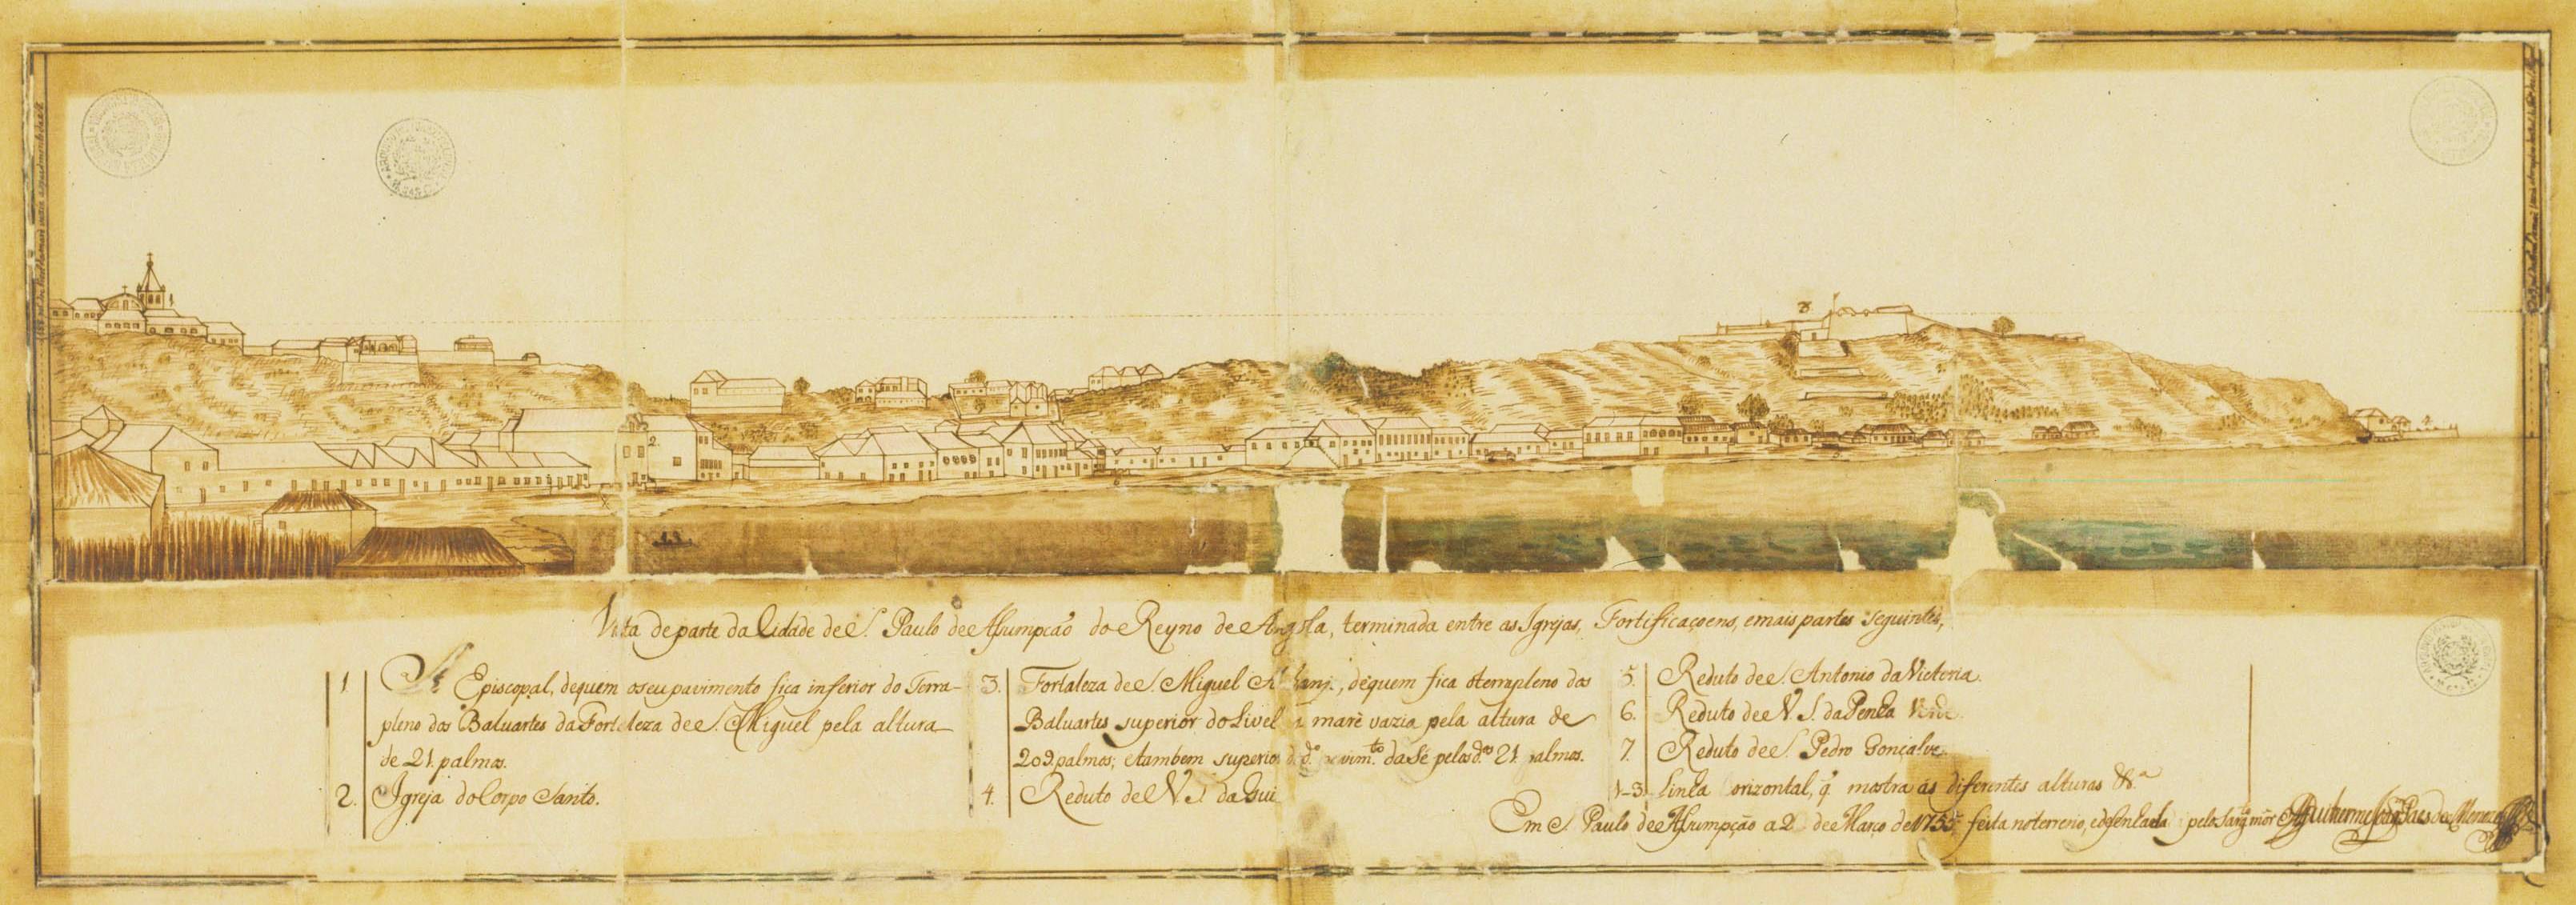 Vista de parte da Cidade de S. Paulo de Assumpção do Reyno de Angola, terminada entre as Igrejas, Fortificaçoens, e mais partes seguintes,
1. Sé Episcopal, de quem o seu pavimento fica inferior do Terra-
pleno dos Baluartes da Fortaleza de S. Miguel pela altura
de 21. palmos.
2. Igreja do Corpo Santo.
3. Fortaleza de S. Miguel de quem fica o terrapleno dos
Baluartes superior do Livel maré vazia pela altura de
209. palmos; e tambem superior da Sé pelos d.os 21 palmos.
4. Reduto de N. S. da Gui
5. Reduto de S. Antonio da Victoria.
6. Reduto de N. S. da Penha
7. Reduto de S. Pedro Gonçalve
1-3 Linha orizontal, q̃ mostra ás diferentes alturas &.a
Em S. Paulo de Assumpção a 2 de Março de 1755 feita no terreno, e desenhada pelo Sarg.to mór Guilherme Paes de Menezes
2
3